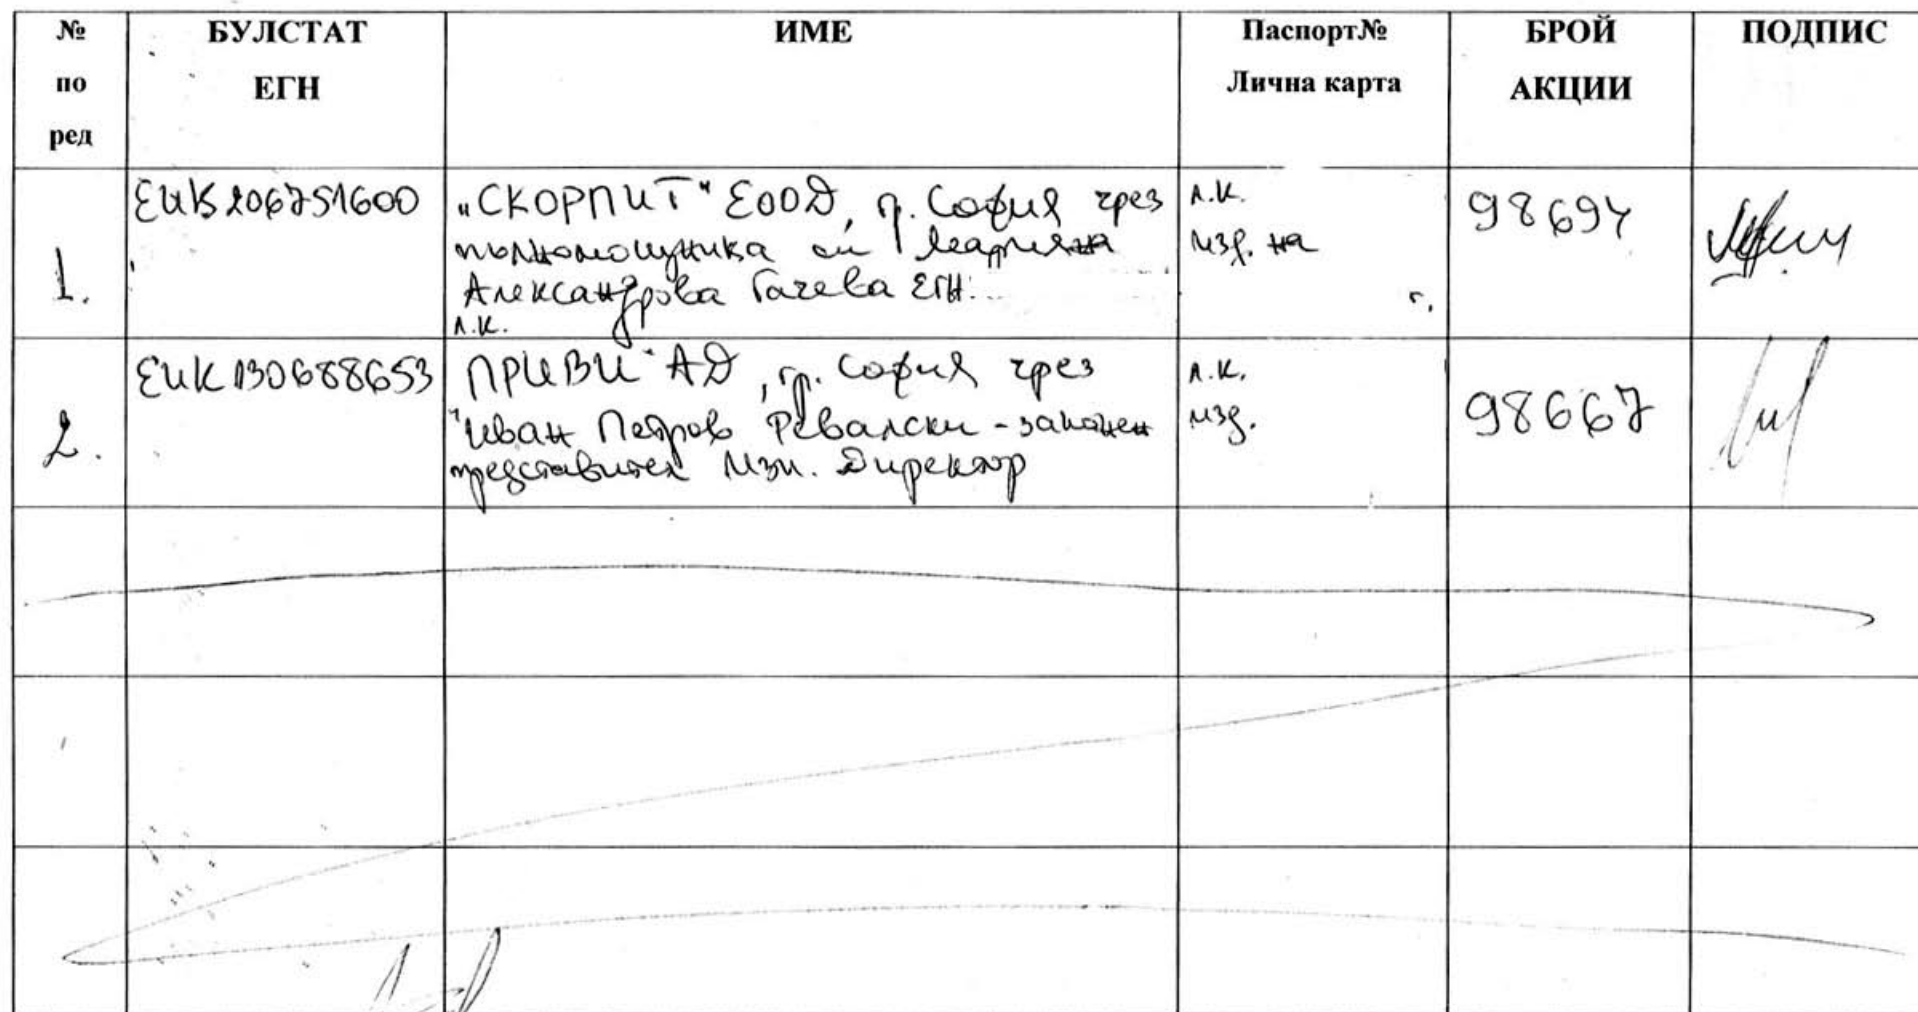 № по ред
БУЛСТАТ ЕГН
ИМЕ
Паспорт№ Лична карта
БРОЙ АКЦИИ
ПОДПИС
1.
ЕИК 206751600
"СКОРПИТ" ЕООД, гр. София чрез
пълномощника си Марияна
Александрова Гачева ЕГН
л.к.
л.к.
изд. на
г.
98694
2.
ЕИК 130688653
"ПРИВИ" АД, гр. София чрез
Иван Петров Ревалски - законен
представител Изп. Директор
л.к.
изд.
98667